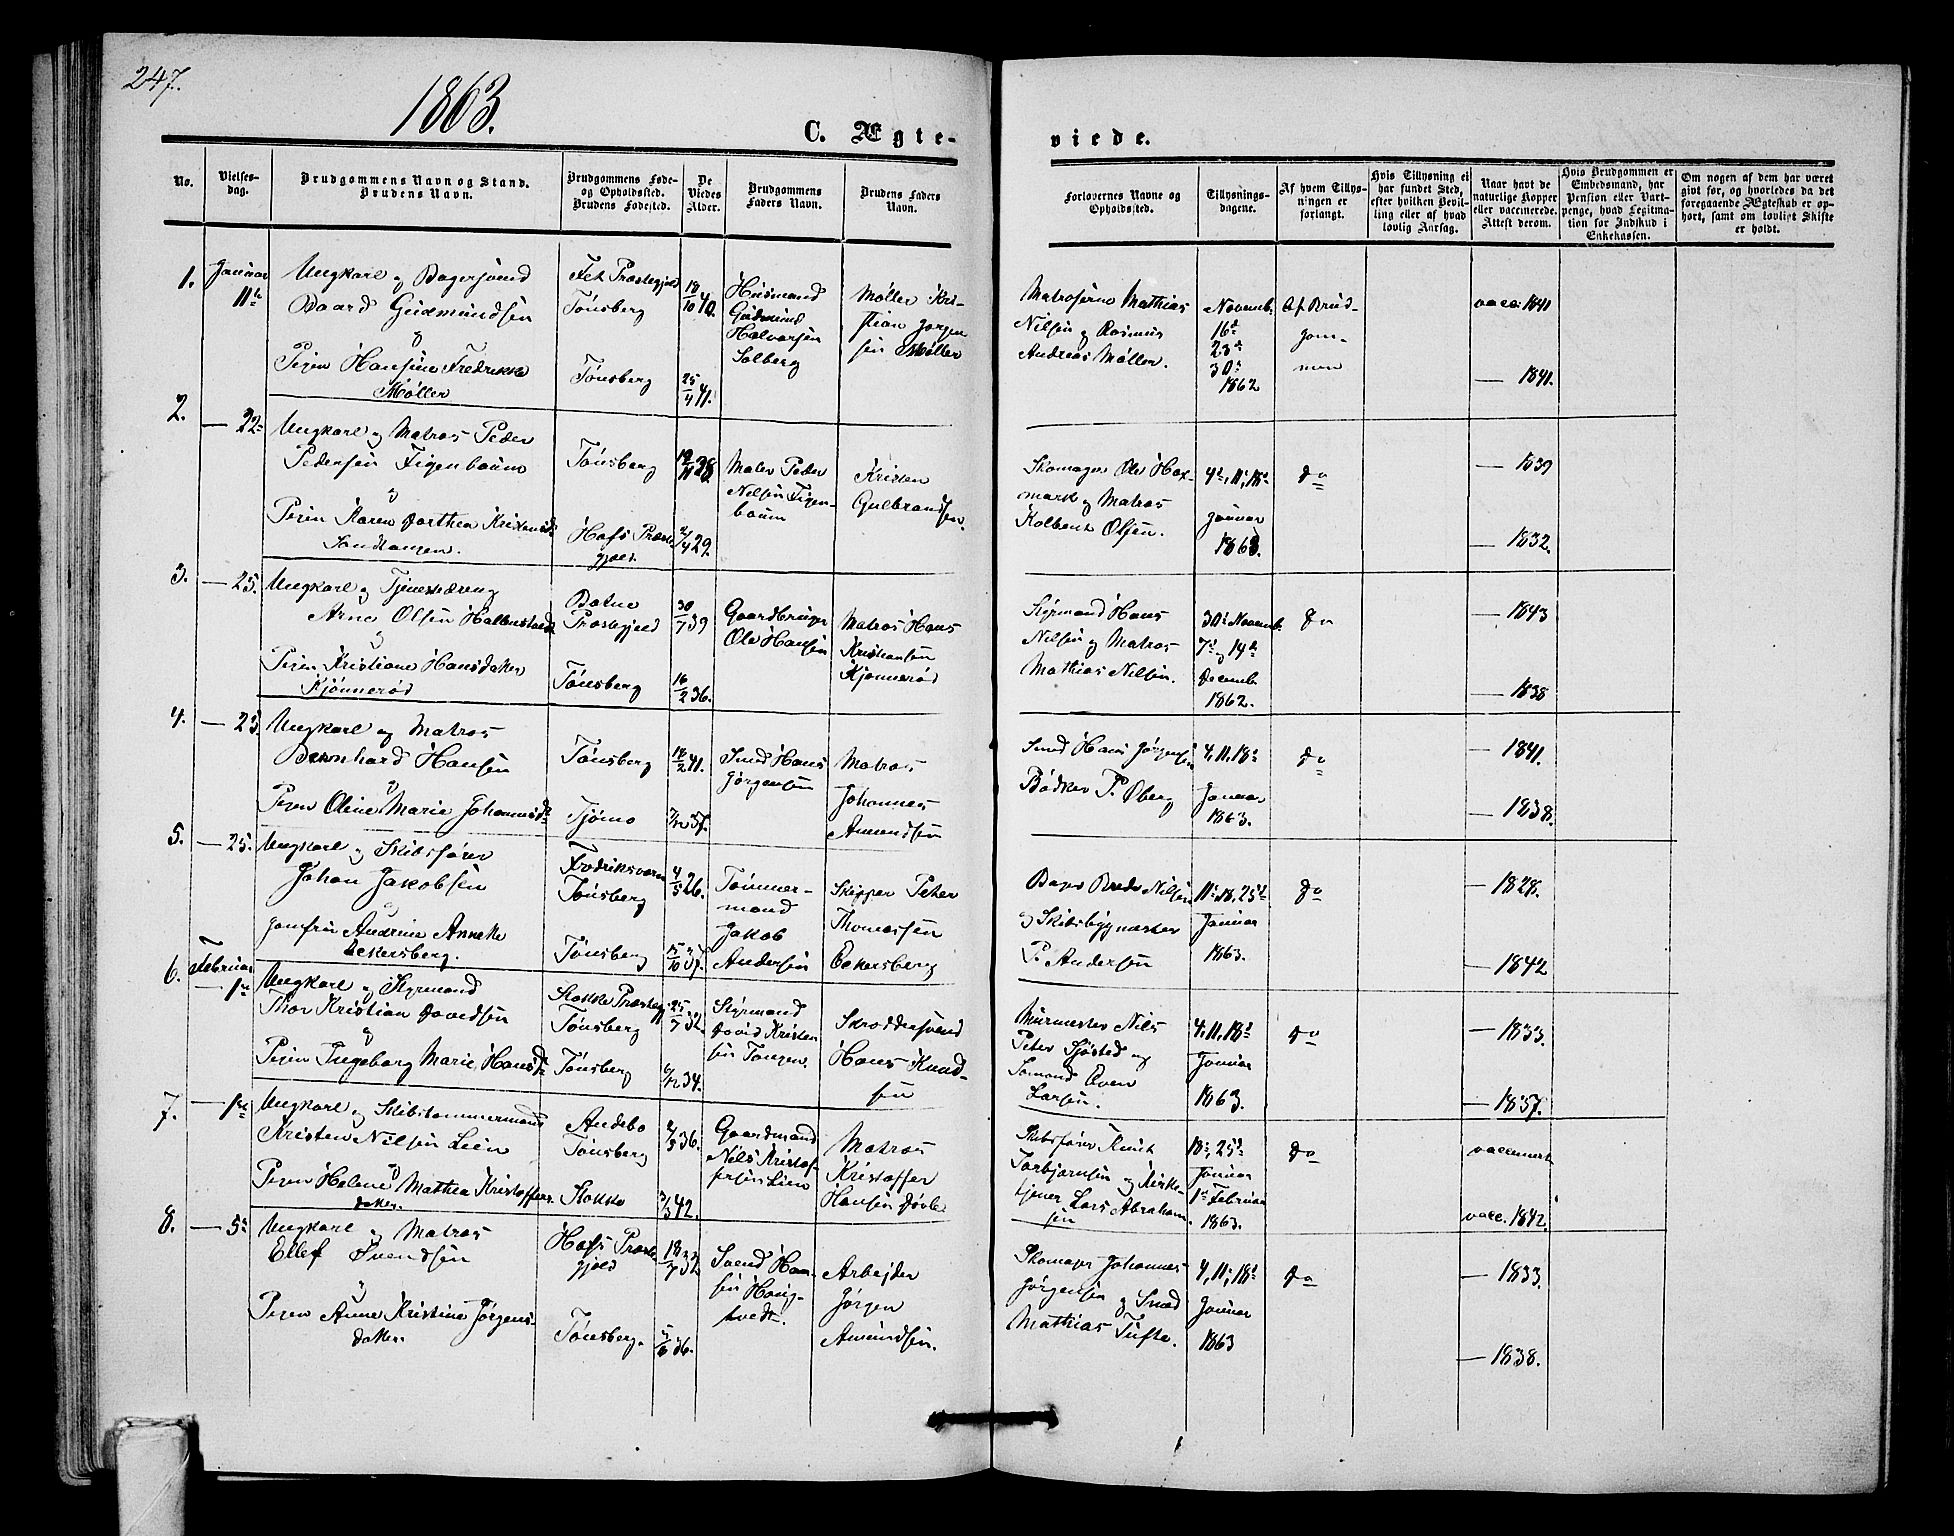 247.
1863.
C. Ægte-
viede.
No.
Vielses-
dag.
Brudgommens Navn og Stand.
Brudens Navn.
Brudgommens Føde-
og Opholdssted.
Brudens Fødested.
De
Viedes
Alder.
Brudgommens
Faders Navn.
Brudens Faders
Navn.
Forlovernes Navne og
Opholdssted.
Tillysnings-
dagene.
Af hvem Tillys-
ningen er
forlangt.
Hvis Tillysning ei
har fundet Sted,
efter hvilken Bevil-
ling eller af hvad
lovlig Aarsag.
Naar havt de
naturlige Kopper
eller vaccinerede.
Attest derom.
Hvis Brudgommen er
Embedsmand, har
Pension eller Vart-
penge, hvad Legitima-
tion for Indskud i
Enkekassen.
Om nogen af dem har været
givt før, og hvorledes da det
foregaaende Ægteskab er op-
hørt, samt om lovligt Skifte
er holdt.
1.
Januar
11te
Ungkarl og Bagersvend
Baard Gudmundsen
og
Pigen Hansine Fredrikke
Møller
Fet Præstegjeld
Tønsberg
Tønsberg
18/10 40.
25/4 41.
Husmand
Gudmund
Halvorsen
Solberg
Møller Kri-
stian Jørgen-
sen Møller
Matroserne Mathias
Nilsen og Rasmus
Andreas Møller.
Novemb.
16de
23de
30te
1862
Af Brud-
gom-
men
vacc. 1841
— 1841.
2.
— 22
Ungkarl og Matros Peder
Pedersen Figenbaum
og
Pigen Karen Dorthea Kristensd.
Sandtangen.
Tønsberg
Hofs Præste-
gjeld.
38.
2/4 29.
Maler Peder
Nilsen Figen-
baum
Kristen
Gulbrandsen.
Skomager Ole Hax-
mark og Matros
Kolbent Olsen.
4de, 11te, 18de
Januar
1863.
do
— 1839
— 1832.
3.
— 25.
Ungkarl og Tjenestedreng
Arne Olsen Hallenstvedt
og
Pigen Kristiane Hansdatter
Kjønnerød
Botne
Præstegjeld
Tønsberg
30/7 39
16/2 36.
Gaardbruger
Ole Hansen
Matros Hans
Kristiansen
Kjønnerød
Styrmand Hans
Nilsen og Matros
Mathias Nilsen.
30te Novemb.
7de og 14de
Decemb.
1862.
do
— 1843
— 1838
4.
— 23
Ungkarl og Matros
Bernhard Hansen
og
Pigen Oline Marie Johannesd.
Tønsberg
Tjømø
18/2 41.
7/12 37.
Smed Hans
Jørgensen
Matros
Johannes
Amundsen
Smed Hans Jørgensen
Bødker P. Øberg
4, 11, 18de
Januar
1863.
do
— 1841.
— 1838.
5.
— 25.
Ungkarl og Skibsfører
Johan Jakobsen
og
Jomfru Andrine Annette
Eckersberg.
Fredriksværn
Tønsberg
Tønsberg
4/5 26.
15/10 37.
Tømmer-
mand
Jakob
Andersen
Skipper Peter
Thomassen
Eckersberg
Bager Brede Nilsen
og Skibsbygmester
P. Andersen
11te, 18, 25de
Januar
1863.
do
— 1828.
— 1842
6.
Februar
— 1ste
Ungkarl og Styrmand
Thor Kristian Davidsen
og
Pigen Ingeborg Marie Hansd.
Stokke Præstegj.
Tønsberg
Tønsberg
25/7 32.
6/12 34.
Styrmand
David Kristen-
sen Tangen.
Skræddersvend
Hans Knud-
sen
Murmester Nils
Peter Sjøsted og
Sømand Even
Larsen.
4, 11, 18de
Januar
1863.
do
— 1833.
— 1857.
7.
— 1ste
Ungkarl og Skibstømmermand
Kristen Nilsen Lien
og
Pigen Helene Mathea Kristoffers-
datter.
Andebo
Tønsberg
Stokke
2/3 36.
3/3 42.
Gaardmand
Nils Kristof-
fersen Lien
Matros
Kristoffer
Hansen Døvle
Skibsfører Knut
Torbjørnsen og Kirke-
tjener Lars Abraham-
sen
18de, 25de
Januar
1ste Februar
1863.
do
vaccinert
vacc. 1842.
8.
— 5te
Ungkarl og Matros
Ellef Svendsen
og
Pigen Anne Kristine Jørgens-
datter.
Hofs Præste-
gjeld
Tønsberg.
18/7 32.
5/6 36.
Svend Han-
sen Haug-
tvedt.
Arbejder
Jørgen
Amundsen.
Skomager Johannes
Jørgensen og Smed
Mathias Tufte.
4, 11, 18de
Januar
1863
do
— 1833.
— 1838.